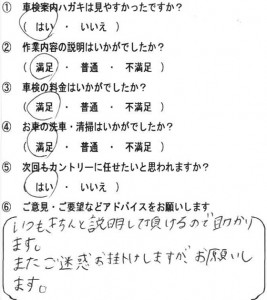 ① 車検案内ハガキは見やすかったですか?
( はい ・ いいえ )
② 作業内容の説明はいかがでしたか?
( 満足 ・ 普通 ・ 不満足 )
③ 車検の料金はいかがでしたか?
( 満足 ・ 普通 ・ 不満足 )
④ お車の洗車・清掃はいかがでしたか?
( 満足 ・ 普通 ・ 不満足 )
⑤ 次回もカントリーに任せたいと思われますか?
( はい ・ いいえ )
⑥ ご意見・ご要望などアドバイスをお願いします
いつもきちんと説明して頂けるので助かり
ます。
またご迷惑お掛けしますが、お願いし
ます。